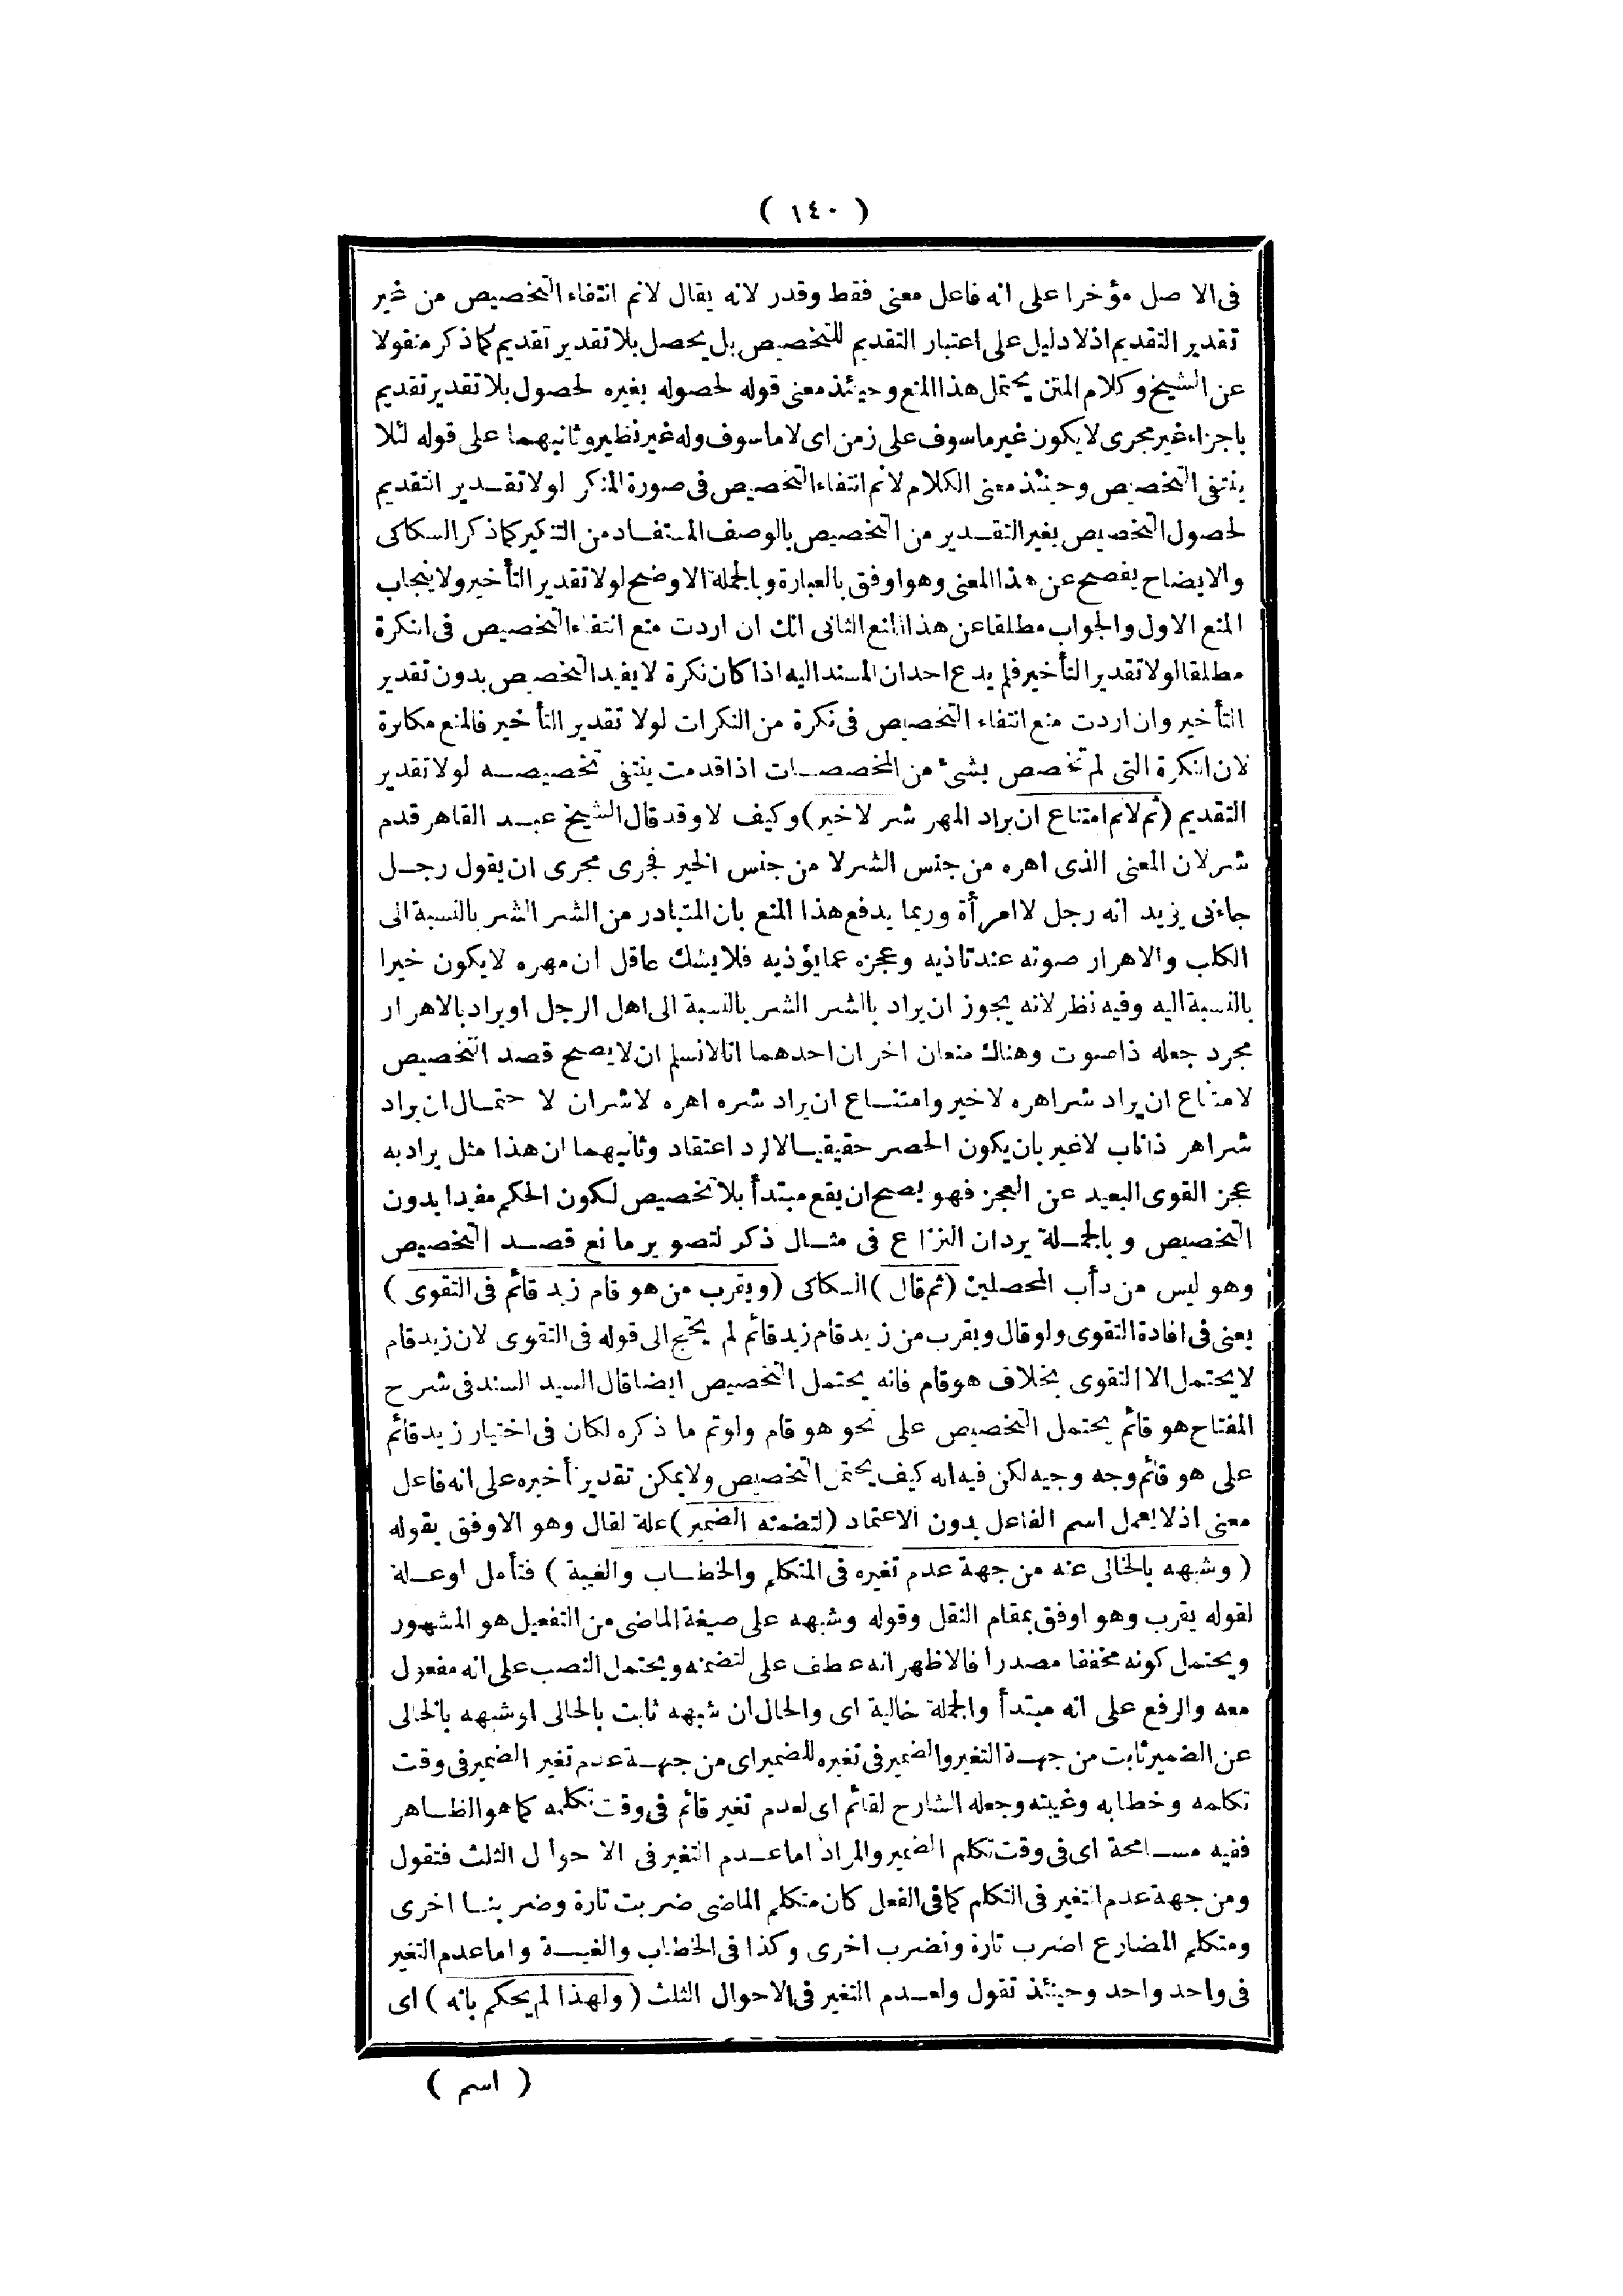 ( ١٤٠ )
فى الاصل مؤخرا على انه فاعل معنى فقط وقدر لانه يقال لانم انتفاء التخصيص من غير
تقدير التقديم اذ لا دليل على اعتبار التقديم للتخصيص بل يحصل بلا تقدير تقديم كما ذكر منقولا
عن الشيخ وكلام المتن يحتمل هذا المنع وحينئذ معنى قوله لحصوله بغيره لحصول بلا تقدير تقديم
باجزاء غير مجرى لا يكون غير ماسوف على زمن اى لا ماسوف وله غير نظير وثانيهما على قوله لئلا
ينتفى التخصيص وحينئذ معنى الكلام لانم انتفاء التخصيص فى صورة المنكر لولا تقدير التقديم
لحصول التخصيص بغير التقدير من التخصيص بالوصف المستفاد من التنكير كما ذكر السكاكى
والايضاح يفصح عن هذا المعنى وهو اوفق بالعبارة وبالجملة الاوضح لولا تقدير التأخير ولا ينجاب
المنع الاول والجواب مطلقا عن هذا المنع الثانى انك ان اردت منع انتفاء التخصيص فى النكرة
مطلقا لولا تقدير التأخير فلم يدع احد ان المسند اليه اذا كان نكرة لا يفيد التخصيص بدون تقدير
التأخير وان اردت منع انتفاء التخصيص فى نكرة من النكرات لولا تقدير التأخير فالمنع مكابرة
لان النكرة التى لم تخصص بشئ من المخصصات اذا قدمت ينتفى تخصيصه لولا تقدير
التقديم (ثم لانم امتناع ان يراد المهر شر لا خير) وكيف لا وقد قال الشيخ عبد القاهر قدم
شر لان المعنى الذى اهره من جنس الشر لا من جنس الخير فجرى مجرى ان يقول رجل
جاءنى يزيد انه رجل لا امرأة وربما يدفع هذا المنع بان المتبادر من الشر الشر بالنسبة الى
الكلب والاهرار صوته عند تاذيه وعجزه عما يؤذيه فلا يشك عاقل ان مهره لا يكون خيرا
بالنسبة اليه وفيه نظر لانه يجوز ان يراد بالشر الشر بالنسبة الى اهل الرجل او يراد بالاهرار
مجرد جعله ذا صوت وهناك منعان اخران احدهما انا لا نسلم ان لا يصح قصد التخصيص
لامتناع ان يراد شر اهره لا خير وامتناع ان يراد شره اهره لا شران لاحتمال ان يراد
شر اهر ذاناب لا غير بان يكون الحصر حقيقيا لا لرد اعتقاد وثانيهما ان هذا مثل يراد به
عجز القوى البعيد عن العجز فهو يصح ان يقع مبتدأ بلا تخصيص لكون الحكم مفيدا بدون
التخصيص وبالجملة يرد ان النزاع فى مثال ذكر لتصوير مانع قصد التخصيص
وهو ليس من دأب المحصلين (ثم قال) السكاكى (ويقرب من هو قام زيد قائم فى التقوى)
يعنى فى افادة التقوى ولو قال ويقرب من زيد قام زيد قائم لم يحتج الى قوله فى التقوى لان زيد قام
لا يحتمل الا التقوى بخلاف هو قام فانه يحتمل التخصيص ايضا قال السيد السند فى شرح
المفتاح هو قائم يحتمل التخصيص على نحو هو قام ولو تم ما ذكره لكان فى اختيار زيد قائم
على هو قائم وجه وجيه لكن فيه انه كيف يحتمل التخصيص ولا يمكن تقدير تأخيره على انه فاعل
معنى اذ لا يعمل اسم الفاعل بدون الاعتماد (لتضمنه الضمير) علة لقال وهو الاوفق بقوله
(وشبهه بالخالى عنه من جهة عدم تغيره فى المتكلم والخطاب والغيبة) فتأمل او علة
لقوله يقرب وهو اوفق بمقام النقل وقوله وشبهه على صيغة الماضى من التفعيل هو المشهور
ويحتمل كونه مخففا مصدرا فالاظهر انه عطف على لتضمنه ويحتمل النصب على انه مفعول
معه والرفع على انه مبتدأ والجملة حالية اى والحال ان شبهه ثابت بالخالى او شبهه بالخالى
عن الضمير ثابت من جهة التغير والضمير فى تغيره للضمير اى من جهة عدم تغير الضمير فى وقت
تكلمه وخطابه وغيبته وجعله الشارح لقائم اى لعدم تغير قائم فى وقت تكلمه كما هو الظاهر
ففيه مسامحة اى فى وقت تكلم الضمير والمراد اما عدم التغير فى الاحوال الثلث فتقول
ومن جهة عدم التغير فى التكلم كما فى الفعل كان متكلم الماضى ضربت تارة وضربنا اخرى
ومتكلم المضارع اضرب تارة ونضرب اخرى وكذا فى الخطاب والغيبة واما عدم التغير
فى واحد واحد وحينئذ تقول ولعدم التغير فى الاحوال الثلث (ولهذا لم يحكم بانه) اى
( اسم )